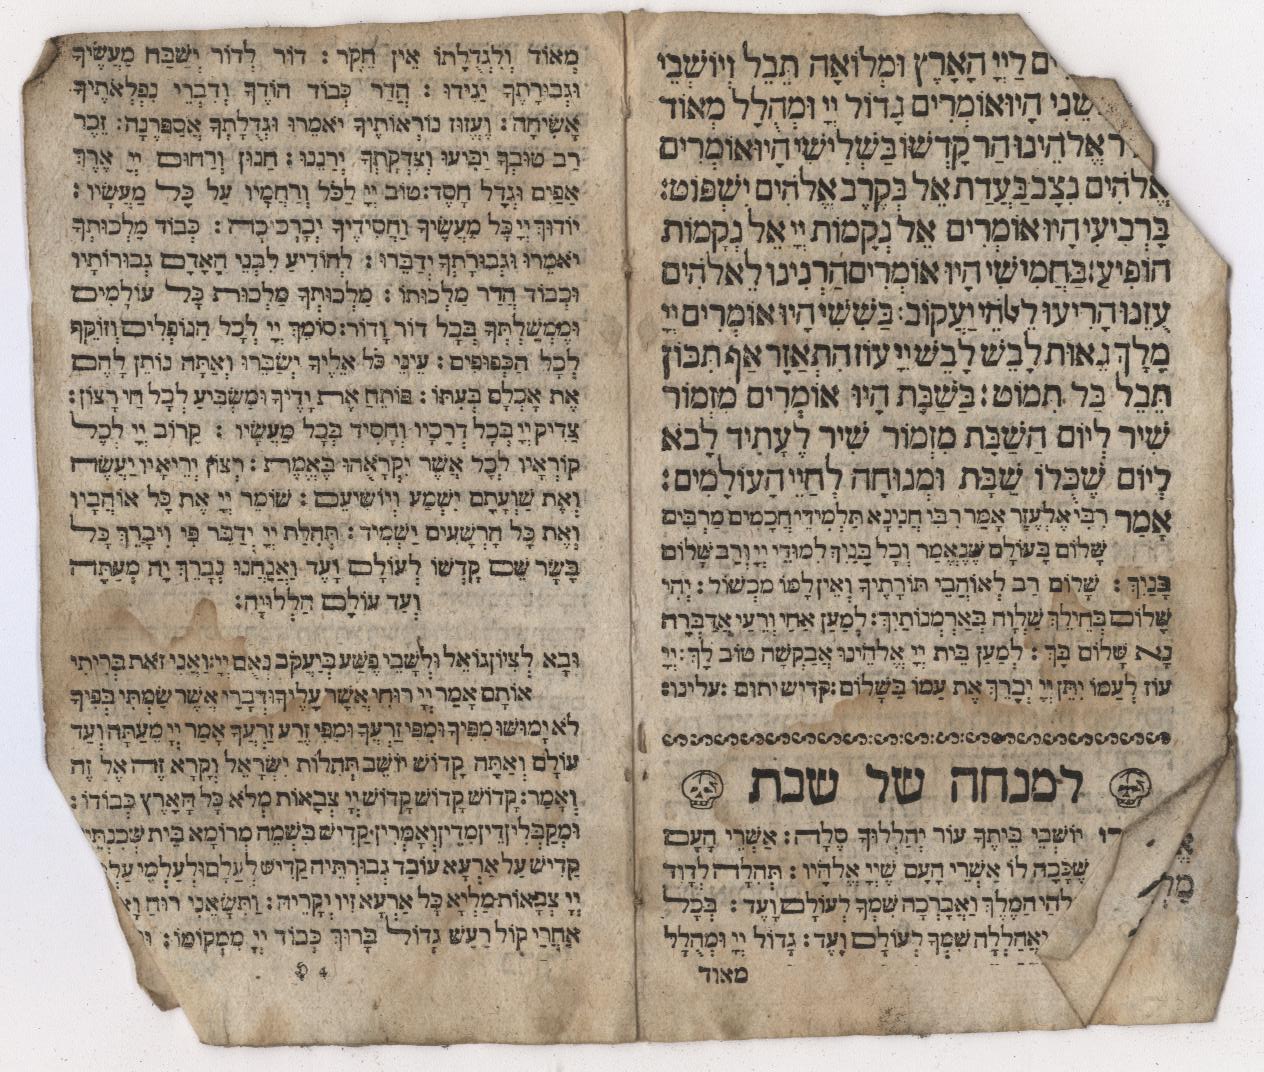 לַיְיָ הָאָרֶץ וּמְלוֹאָהּ תֵּבֵל וְיוֹשְׁבֵי
הָיוּ אוֹמְרִים גָּדוֹל יְיָ וּמְהֻלָּל מְאוֹד
אֱלֹהֵינוּ הַר קָדְשׁוֹ בַּשְּׁלִישִׁי הָיוּ אוֹמְרִים
אֱלֹהִים נִצָּב בַּעֲדַת אֵל בְּקֶרֶב אֱלֹהִים יִשְׁפּוֹט:
בָּרְבִיעִי הָיוּ אוֹמְרִים אֵל נְקָמוֹת יְיָ אֵל נְקָמוֹת
הוֹפִיעַ: בַּחֲמִישִׁי הָיוּ אוֹמְרִים הַרְנִינוּ לֵאלֹהִים
עֻזֵּנוּ הָרִיעוּ לֵאלֹהֵי יַעֲקוֹב: בַּשִּׁשִּׁי הָיוּ אוֹמְרִים יְיָ
מָלָךְ גֵּאוּת לָבֵשׁ לָבֵשׁ יְיָ עוֹז הִתְאַזָּר אַף תִּכּוֹן
תֵּבֵל בַּל תִּמּוֹט: בַּשַּׁבָּת הָיוּ אוֹמְרִים מִזְמוֹר
שִׁיר לְיוֹם הַשַּׁבָּת מִזְמוֹר שִׁיר לֶעָתִיד לָבֹא
לְיוֹם שֶׁכֻּלּוֹ שַׁבָּת וּמְנוּחָה לְחַיֵּי הָעוֹלָמִים:
אָמַר רִבִּי אֶלְעָזָר אָמַר רִבִּי חֲנִינָא תַּלְמִידֵי חֲכָמִים מַרְבִּים
שָׁלוֹם בָּעוֹלָם שֶׁנֶּאֱמַר וְכָל בָּנַיִךְ לִמּוּדֵי יְיָ וְרַב שָׁלוֹם
בָּנָיִךְ: שָׁלוֹם רַב לְאוֹהֲבֵי תּוֹרָתֶיךָ וְאֵין לָמוֹ מִכְשׁוֹל: יְהִי
שָׁלוֹם בְּחֵילֵךְ שַׁלְוָה בְּאַרְמְנוֹתָיִךְ: לְמַעַן אַחַי וְרֵעָי אֲדַבְּרָה
נָא שָׁלוֹם בָּךְ: לְמַעַן בֵּית יְיָ אֱלֹהֵינוּ אֲבַקְשָׁה טוֹב לָךְ: יְיָ
עוֹז לְעַמּוֹ יִתֵּן יְיָ יְבָרֵךְ אֶת עַמּוֹ בַשָּׁלוֹם: קדיש יתום: עלינו:
למנחה של שבת
יוֹשְׁבֵי בֵיתֶךָ עוֹד יְהַלְלוּךָ סֶלָה: אַשְׁרֵי הָעָם
שֶׁכָּכָה לּוֹ אַשְׁרֵי הָעָם שֶׁיְיָ אֱלֹהָיו: תְּהִלָּה לְדָוִד
הַמֶּלֶךְ וַאֲבָרְכָה שִׁמְךָ לְעוֹלָם וָעֶד: בְּכָל
וַאֲהַלְלָה שִׁמְךָ לְעוֹלָם וָעֶד: גָּדוֹל יְיָ וּמְהֻלָּל
מאוד
מְאוֹד וְלִגְדֻלָּתוֹ אֵין חֵקֶר: דּוֹר לְדוֹר יְשַׁבַּח מַעֲשֶׂיךָ
וּגְבוּרֹתֶיךָ יַגִּידוּ: הֲדַר כְּבוֹד הוֹדֶךָ וְדִבְרֵי נִפְלְאֹתֶיךָ
אָשִׂיחָה: וֶעֱזוּז נוֹרְאוֹתֶיךָ יֹאמֵרוּ וּגְדֻלָּתְךָ אֲסַפְּרֶנָּה: זֵכֶר
רַב טוּבְךָ יַבִּיעוּ וְצִדְקָתְךָ יְרַנֵּנוּ: חַנּוּן וְרַחוּם יְיָ אֶרֶךְ
אַפַּיִם וּגְדָל חָסֶד: טוֹב יְיָ לַכֹּל וְרַחֲמָיו עַל כָּל מַעֲשָׂיו:
יוֹדוּךָ יְיָ כָּל מַעֲשֶׂיךָ וַחֲסִידֶיךָ יְבָרְכוּכָה: כְּבוֹד מַלְכוּתְךָ
יֹאמֵרוּ וּגְבוּרָתְךָ יְדַבֵּרוּ: לְהוֹדִיעַ לִבְנֵי הָאָדָם גְּבוּרוֹתָיו
וּכְבוֹד הֲדַר מַלְכוּתוֹ: מַלְכוּתְךָ מַלְכוּת כָּל עוֹלָמִים
וּמֶמְשַׁלְתְּךָ בְּכָל דּוֹר וָדוֹר: סוֹמֵךְ יְיָ לְכָל הַנּוֹפְלִים וְזוֹקֵף
לְכָל הַכְּפוּפִים: עֵינֵי כֹל אֵלֶיךָ יְשַׂבֵּרוּ וְאַתָּה נוֹתֵן לָהֶם
אֶת אָכְלָם בְּעִתּוֹ: פּוֹתֵחַ אֶת יָדֶיךָ וּמַשְׂבִּיעַ לְכָל חַי רָצוֹן:
צַדִּיק יְיָ בְּכָל דְּרָכָיו וְחָסִיד בְּכָל מַעֲשָׂיו: קָרוֹב יְיָ לְכָל
קוֹרְאָיו לְכָל אֲשֶׁר יִקְרָאֻהוּ בֶאֱמֶת: רְצוֹן יְרֵיאָיו יַעֲשֶׂה
וְאֶת שַׁוְעָתָם יִשְׁמַע וְיוֹשִׁיעֵם: שׁוֹמֵר יְיָ אֶת כָּל אוֹהֲבָיו
וְאֶת כָּל הָרְשָׁעִים יַשְׁמִיד: תְּהִלַּת יְיָ יְדַבֵּר פִּי וִיבָרֵךְ כָּל
בָּשָׂר שֵׁם קָדְשׁוֹ לְעוֹלָם וָעֶד וַאֲנַחְנוּ נְבָרֵךְ יָהּ מֵעַתָּה
וְעַד עוֹלָם הַלְלוּיָהּ:
וּבָא לְצִיּוֹן גּוֹאֵל וּלְשָׁבֵי פֶשַׁע בְּיַעֲקֹב נְאֻם יְיָ: וַאֲנִי זֹאת בְּרִיתִי
אוֹתָם אָמַר יְיָ רוּחִי אֲשֶׁר עָלֶיךָ וּדְבָרַי אֲשֶׁר שַׂמְתִּי בְּפִיךָ
לֹא יָמוּשׁוּ מִפִּיךָ וּמִפִּי זַרְעֲךָ וּמִפִּי זֶרַע זַרְעֲךָ אָמַר יְיָ מֵעַתָּה וְעַד
עוֹלָם וְאַתָּה קָדוֹשׁ יוֹשֵׁב תְּהִלּוֹת יִשְׂרָאֵל וְקָרָא זֶה אֶל זֶה
וְאָמַר: קָדוֹשׁ קָדוֹשׁ קָדוֹשׁ יְיָ צְבָאוֹת מְלֹא כָל הָאָרֶץ כְּבוֹדוֹ:
וּמְקַבְּלִין דֵּין מִדֵּין וְאָמְרִין קַדִּישׁ בִּשְׁמֵי מְרוֹמָא בֵּית שְׁכִנְתֵּיהּ
קַדִּישׁ עַל אַרְעָא עוֹבַד גְּבוּרְתֵּיהּ קַדִּישׁ לְעָלַם וּלְעָלְמֵי
יְיָ צְבָאוֹת מַלְיָא כָל אַרְעָא זִיו יְקָרֵיהּ: וַתִּשָּׂאֵנִי רוּחַ
אַחֲרַי קוֹל רַעַשׁ גָּדוֹל בָּרוּךְ כְּבוֹד יְיָ מִמְּקוֹמוֹ:
4